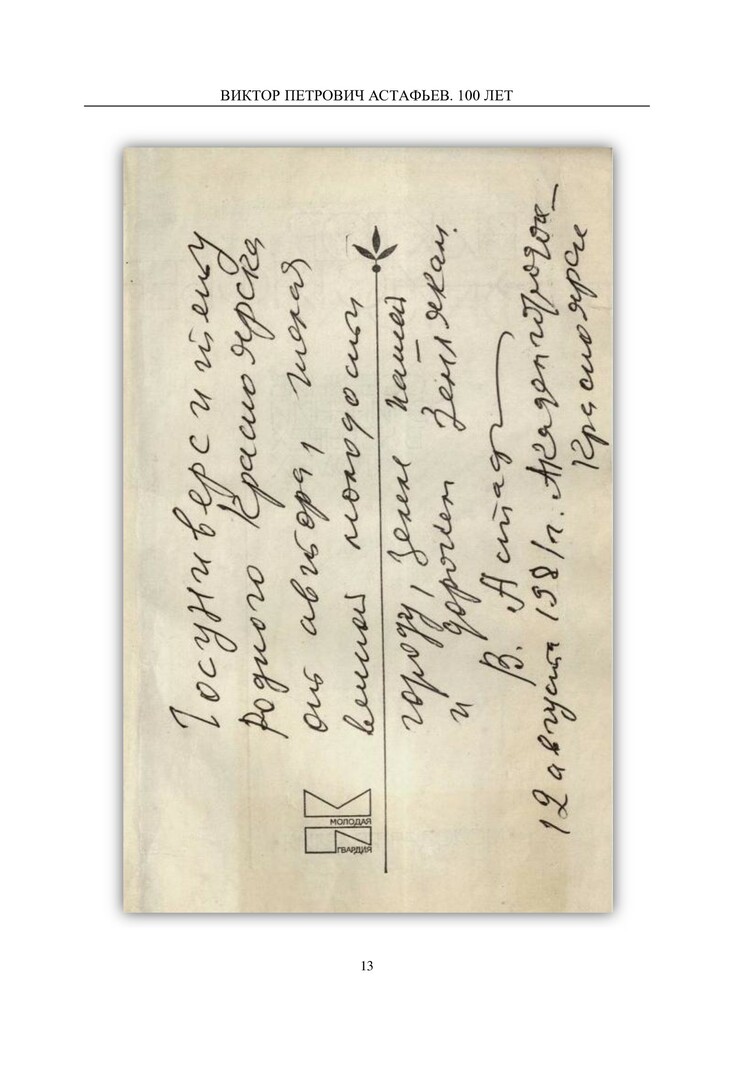 ВИКТОР ПЕТРОВИЧ АСТАФЬЕВ. 100 ЛЕТ
Госуниверситету
родного Красноярска
от автора, желая
вечной молодости
городу, земле нашей
и дорогим землякам.
В. Астаф
12 августа 1981 г. Академгородок –
Красноярск
МОЛОДАЯ
ГВАРДИЯ
13